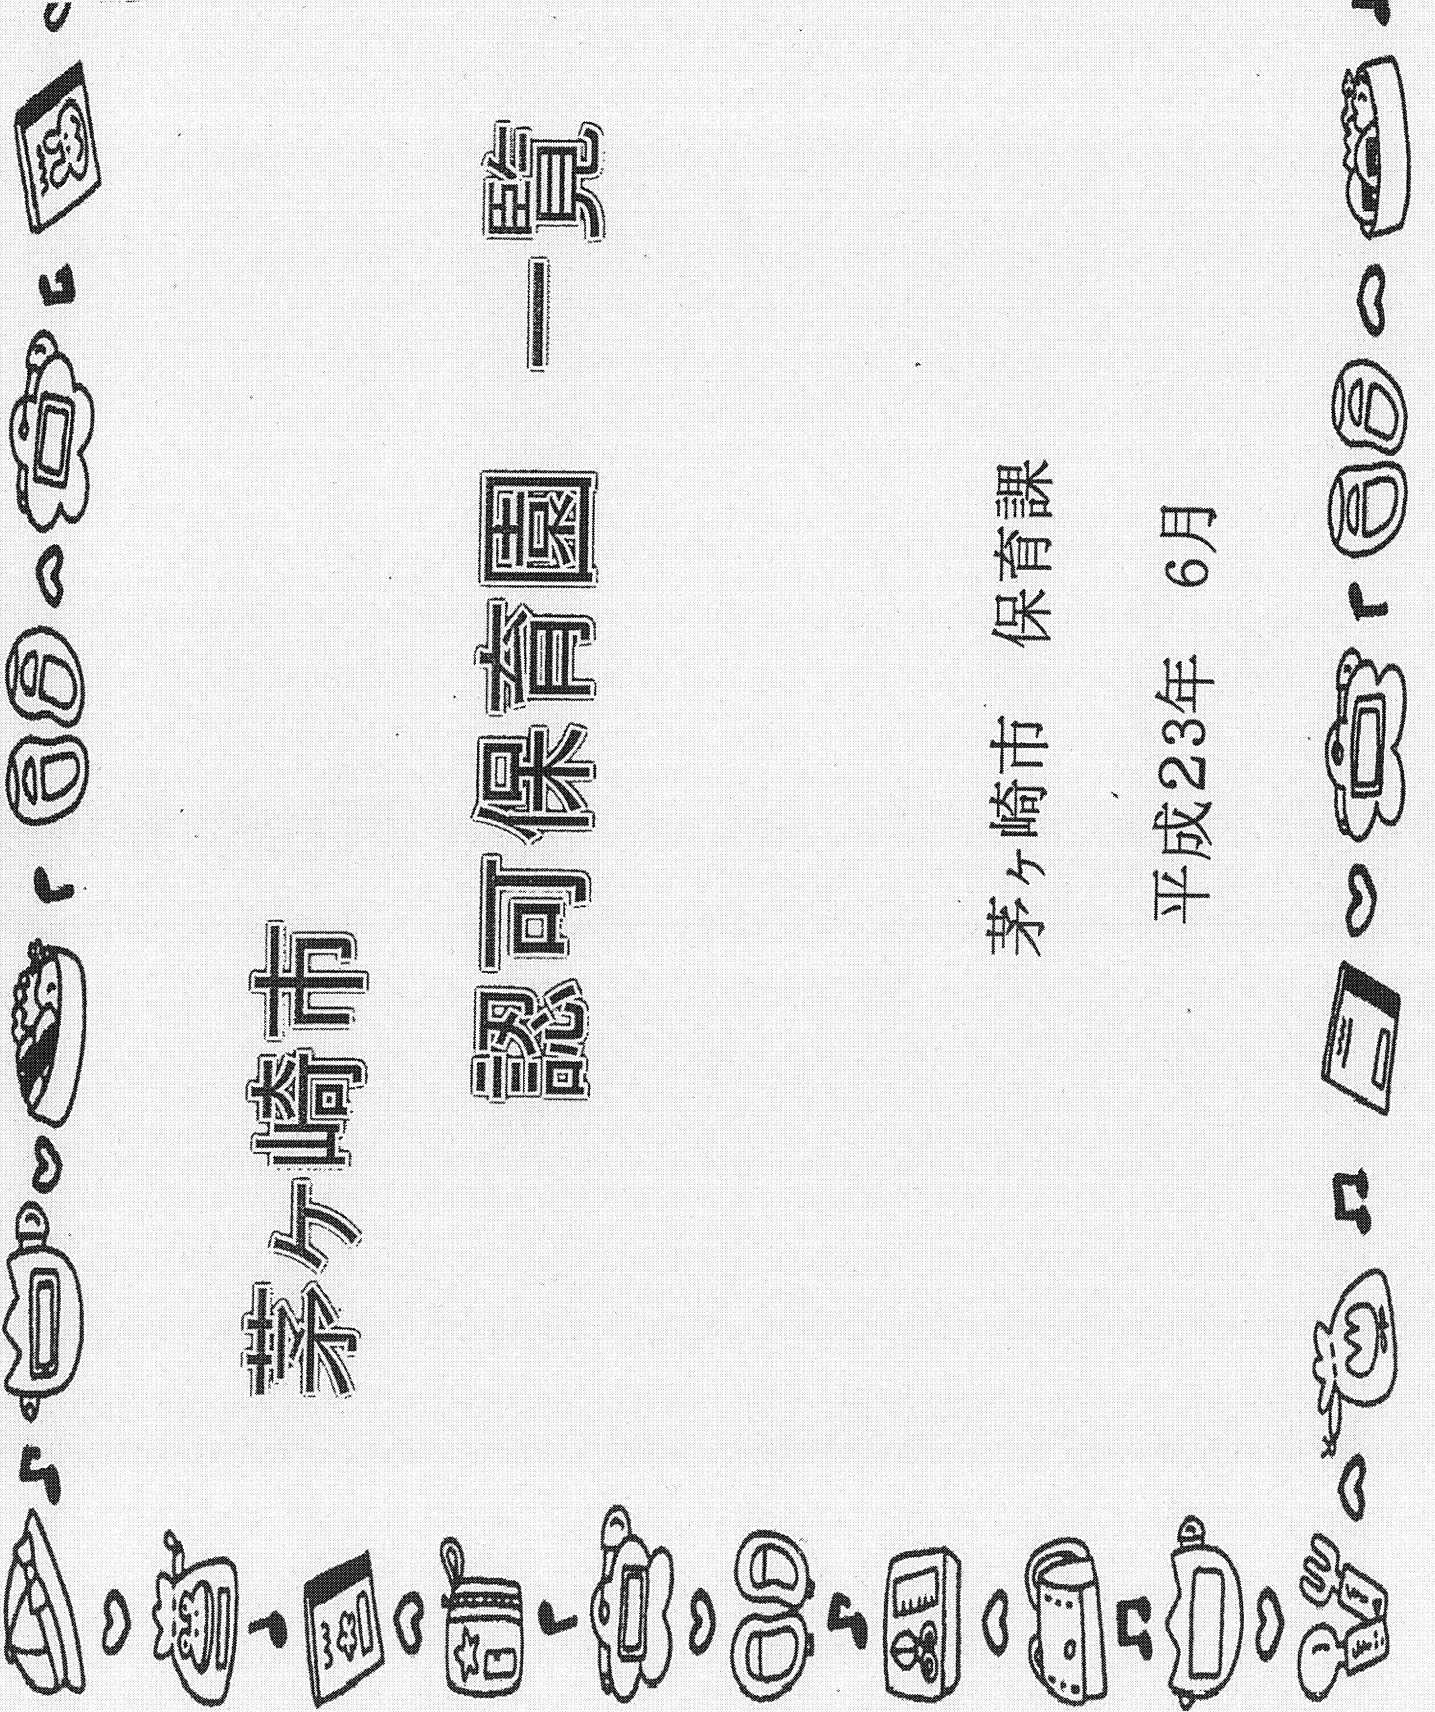 茅ヶ崎市
認可保育園　一覧
茅ヶ崎市　保育課
平成23年　6月